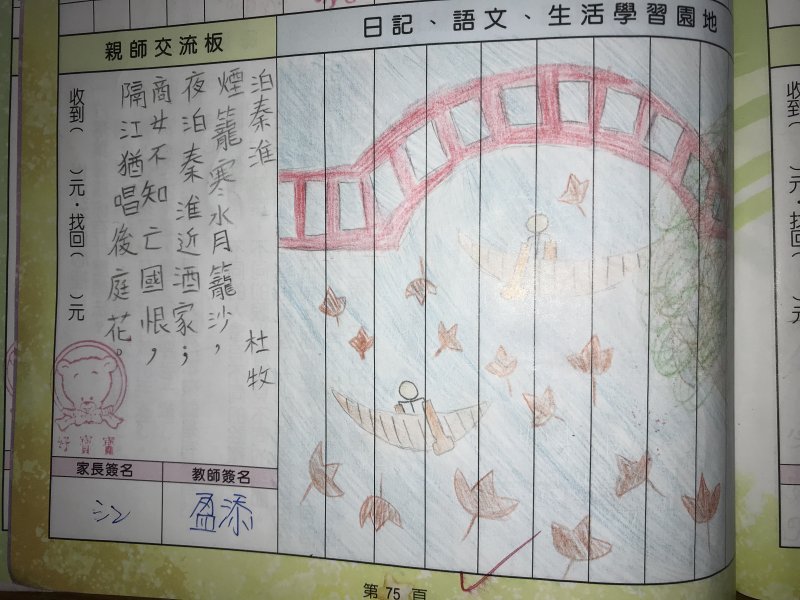 日記、語文、生活學習園地
親師交流板
泊秦淮
杜牧
煙籠寒水月籠沙，
夜泊秦淮近酒家；
商女不知亡國恨，
隔江猶唱後庭花。
收到（　）元・找回（　）元
好寶寶
家長簽名
教師簽名
盈添
第75頁
收到（
）元・找回（
）元